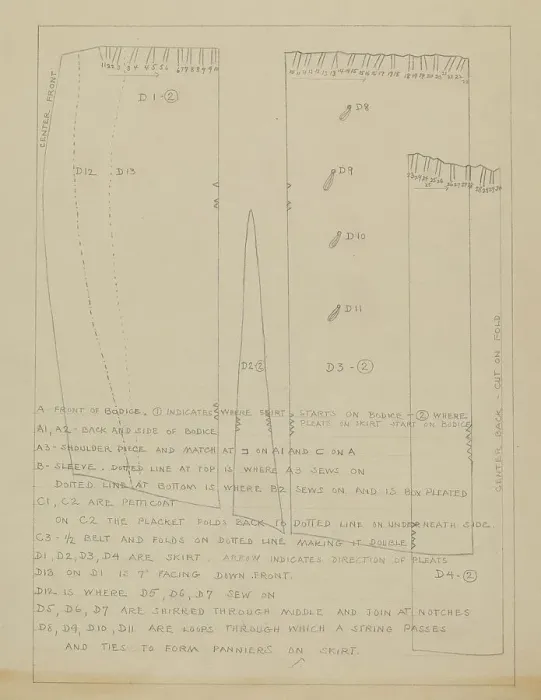 CENTER FRONT
D1-②
D12
D13
D8
D9
D10
D11
D2②
D3-②
CENTER BACK - CUT ON FOLD
D4-②
A - FRONT OF BODICE. ① INDICATES WHERE SKIRT STARTS ON BODICE - ② WHERE
PLEAT IN SKIRT START ON BODICE
A1, A2 - BACK AND SIDE OF BODICE
A3 - SHOULDER PIECE AND MATCH AT ⊐ ON A1 AND ⊏ ON A
B - SLEEVE. DOTTED LINE AT TOP IS WHERE A3 SEWS ON
DOTTED LINE AT BOTTOM IS WHERE B2 SEWS ON AND IS BOX PLEATED
C1, C2 ARE PETTICOAT
ON C2 THE PLACKET FOLDS BACK TO DOTTED LINE ON UNDERNEATH SIDE
C3 - ½ BELT AND FOLDS ON DOTTED LINE MAKING IT DOUBLE
D1, D2, D3, D4 ARE SKIRT. ARROW INDICATES DIRECTION OF PLEATS
D13 ON D1 IS 7" FACING DOWN FRONT.
D12 IS WHERE D5, D6, D7 SEW ON
D5, D6, D7 ARE SHIRRED THROUGH MIDDLE AND JOIN AT NOTCHES
D8, D9, D10, D11 ARE LOOPS THROUGH WHICH A STRING PASSES
AND TIES TO FORM PANNIERS ON SKIRT.